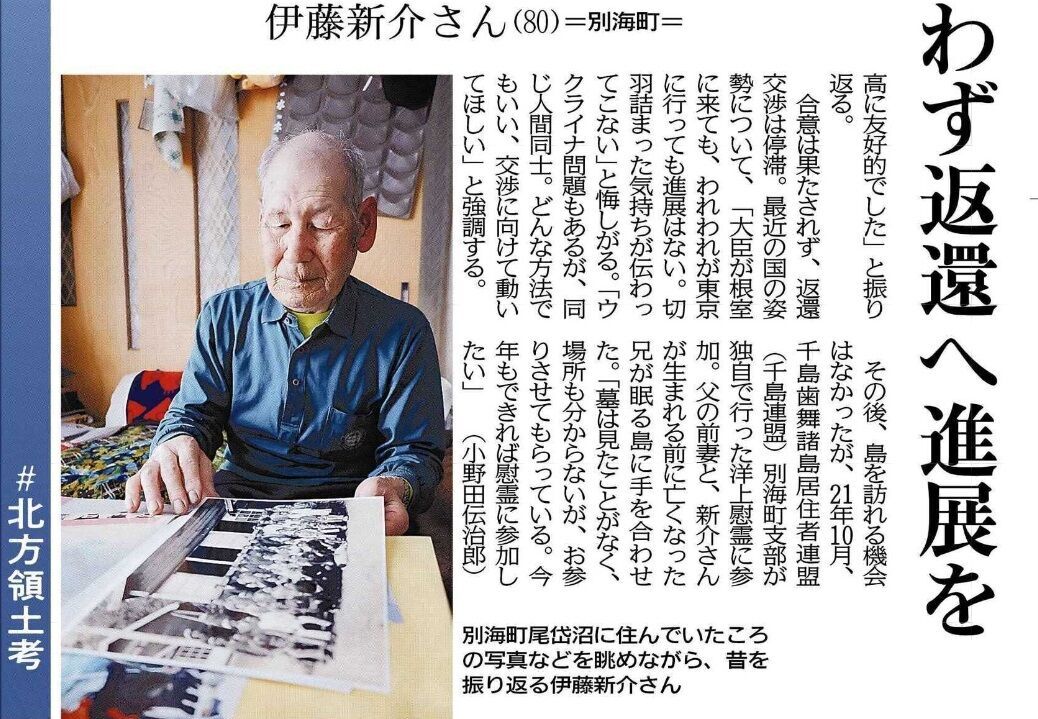 伊藤新介さん(80)=別海町=
わず返還へ進展を
高に友好的でした」と振り
返る。
合意は果たされず、返還
交渉は停滞。最近の国の姿
勢について、「大臣が根室
に来ても、われわれが東京
に行っても進展はない。切
羽詰まった気持ちが伝わっ
てこない」と悔しがる。「ウ
クライナ問題もあるが、同
じ人間同士。どんな方法で
もいい、交渉に向けて動い
てほしい」と強調する。
その後、島を訪れる機会
はなかったが、21年10月、
千島歯舞諸島居住者連盟
(千島連盟)別海町支部が
独自で行った洋上慰霊に参
加。父の前妻と、新介さん
が生まれる前に亡くなった
兄が眠る島に手を合わせ
た。「墓は見たことがなく、
場所も分からないが、お参
りさせてもらっている。今
年もできれば慰霊に参加し
たい」 (小野田伝治郎)
別海町尾岱沼に住んでいたころ
の写真などを眺めながら、昔を
振り返る伊藤新介さん
#北方領土考